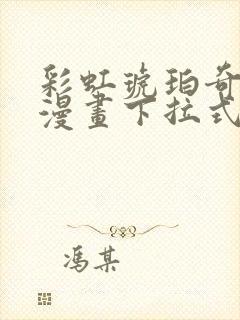 彩虹琥珀奇
漫畫下拉式
馮某